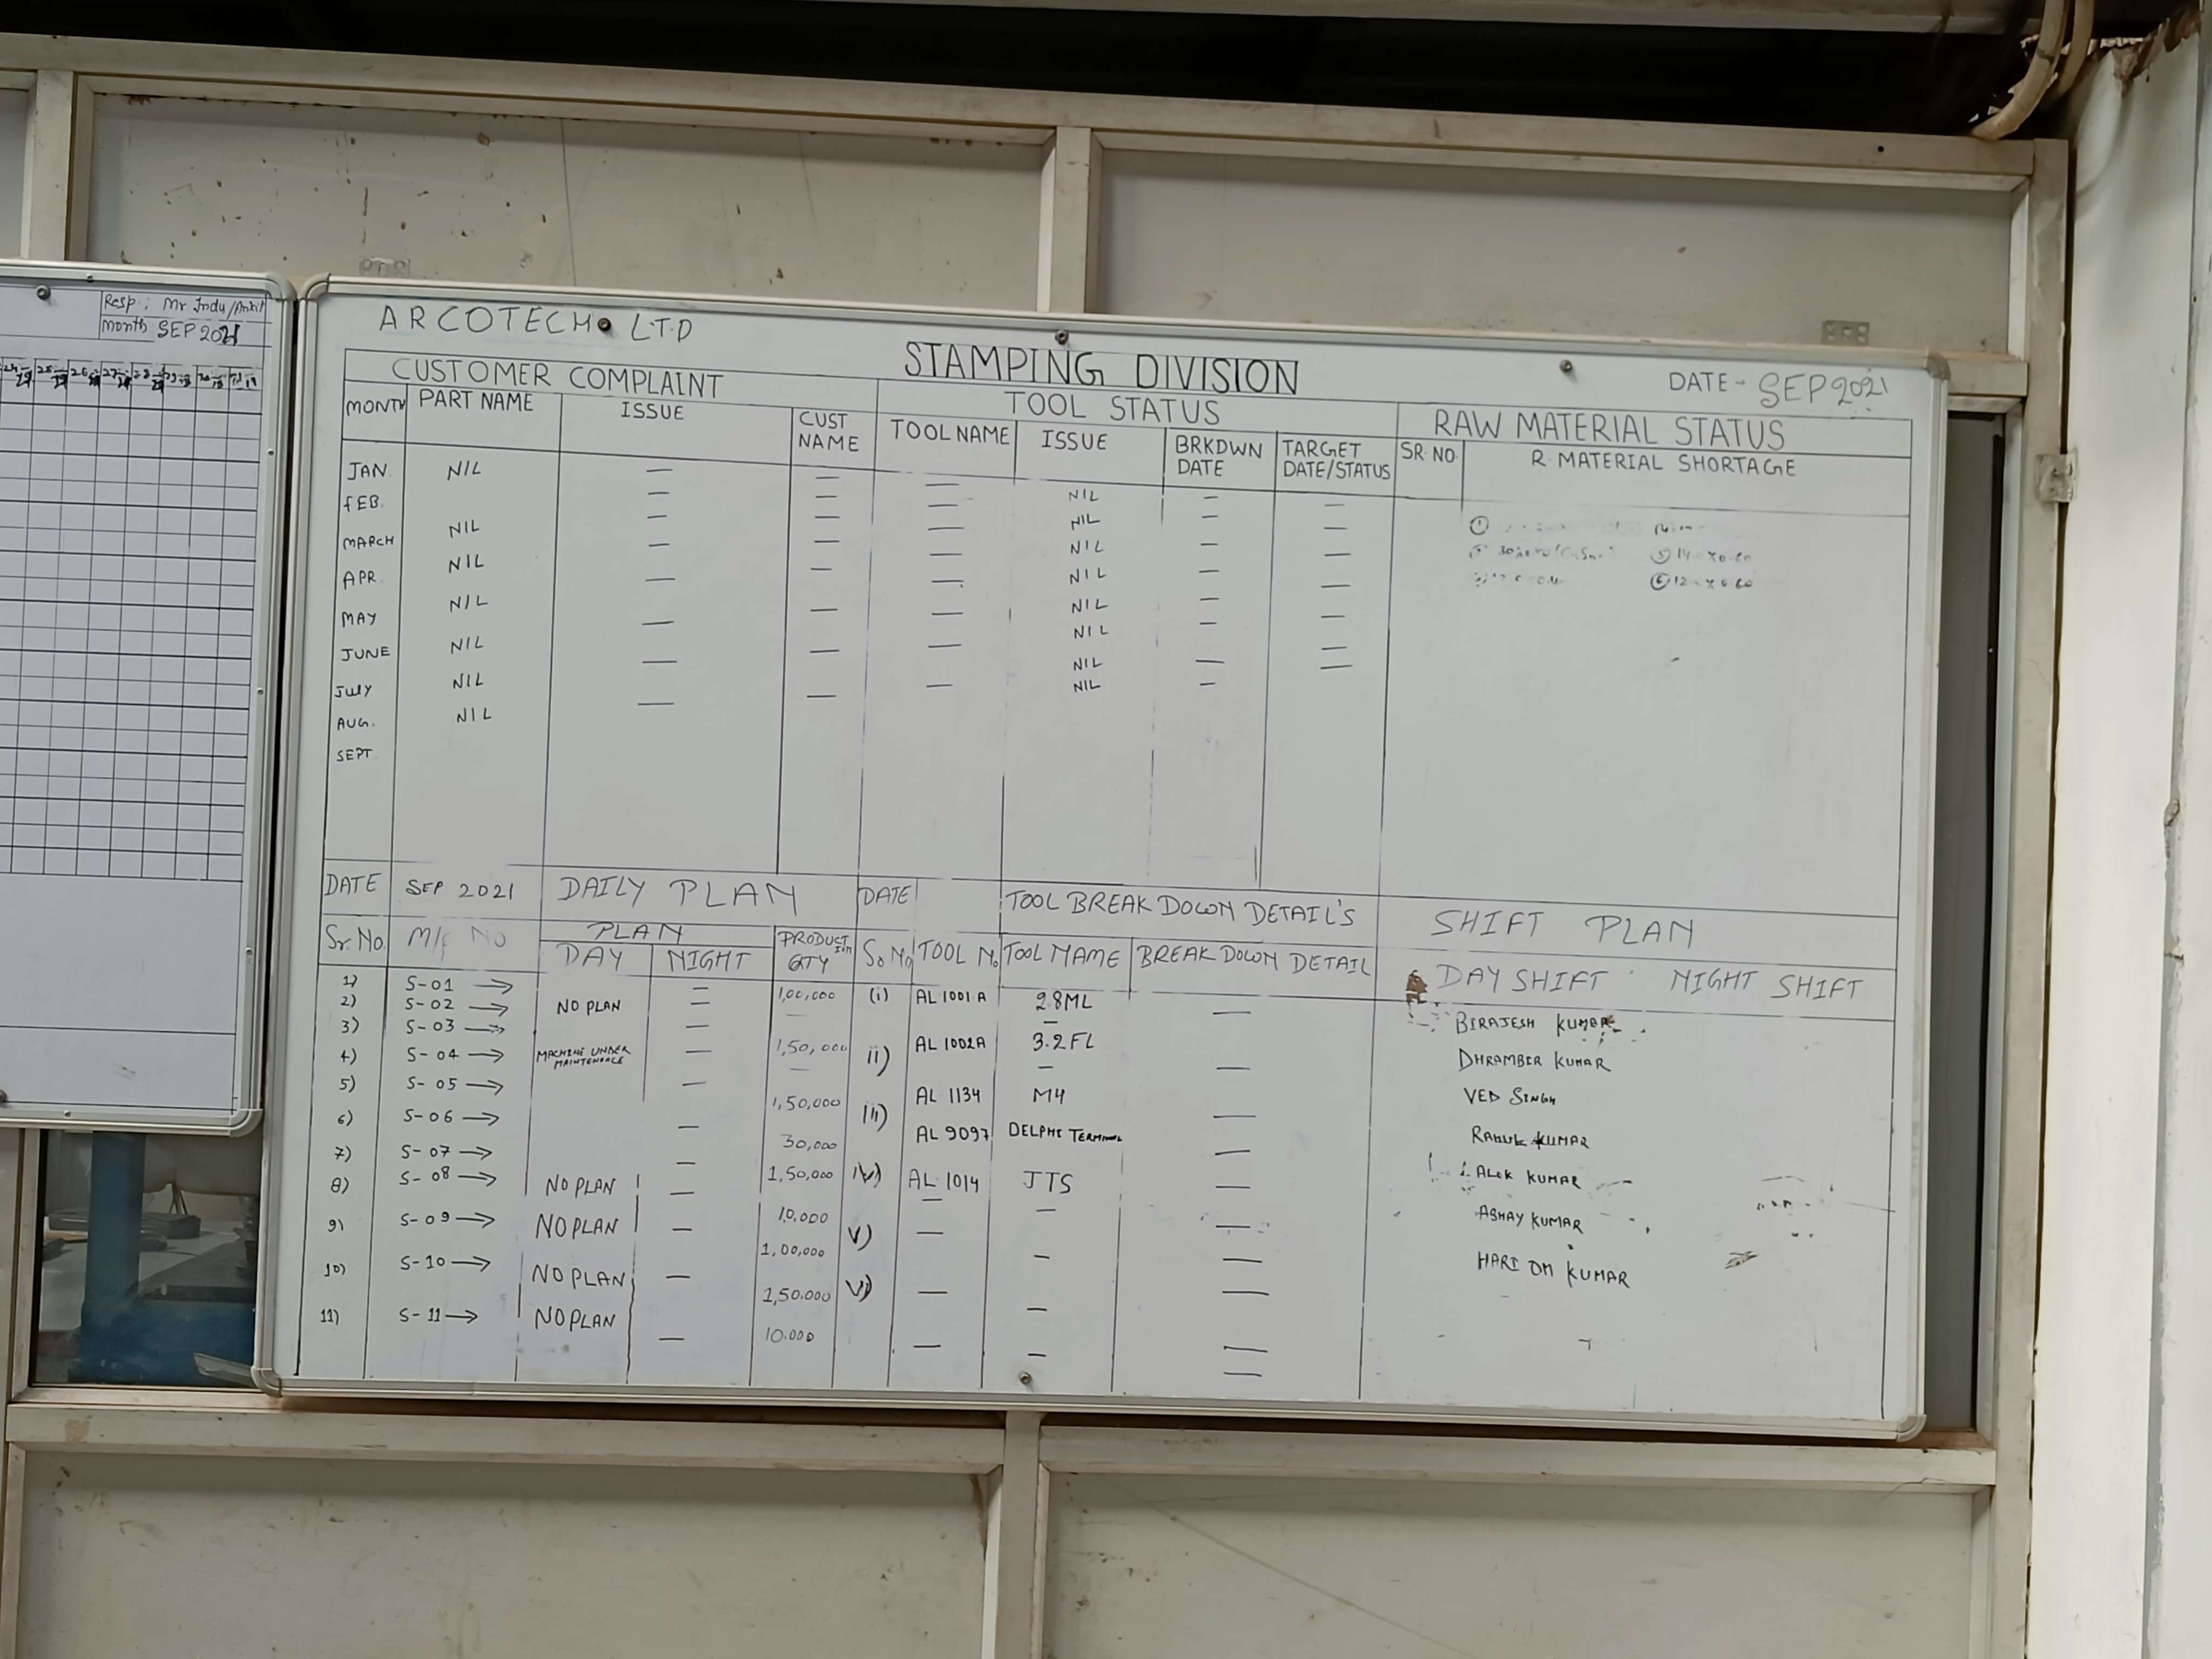 Resp: Mr Indu/Ankit
Month SEP 2021
ARCOTECH LTD
STAMPING DIVISION
DATE - SEP 2021
CUSTOMER COMPLAINT
TOOL STATUS
RAW MATERIAL STATUS
MONTH PART NAME ISSUE CUST NAME TOOL NAME ISSUE BRKDWN DATE TARGET DATE/STATUS SR. NO. R. MATERIAL SHORTAGE
JAN NIL — — — NIL — —
FEB. — — — NIL — —
MARCH NIL — — — NIL — —
APR. NIL — — — NIL — —
MAY NIL — — — NIL — —
JUNE NIL — — NIL — —
JULY NIL — — NIL — —
AUG. NIL — NIL —
SEPT
DATE SEP 2021 DAILY PLAN DATE TOOL BREAK DOWN DETAIL'S SHIFT PLAN
Sr. No. M/c NO PLAN PRODUCTION QTY
DAY NIGHT
So No TOOL No. TOOL NAME BREAK DOWN DETAIL
DAY SHIFT NIGHT SHIFT
1) S-01 → — 1,00,000
2) S-02 → NO PLAN — —
3) S-03 → — 1,50,000
4) S-04 → MACHINE UNDER MAINTENANCE — —
5) S-05 → — 1,50,000
6) S-06 → — 30,000
7) S-07 → — 1,50,000
8) S-08 → NO PLAN — 10,000
9) S-09 → NO PLAN — 1,00,000
10) S-10 → NO PLAN — 1,50,000
11) S-11 → NO PLAN — 10.000
(i) AL 1001 A 2.8ML —
ii) AL 1002A 3.2 FL —
iii) AL 1134 M4 —
AL 9097 DELPHI TERMINAL —
iv) AL 1014 JTS —
v) — — —
vi) — — —
BIRAJESH KUMAR
DHRAMBIR KUMAR
VED SINGH
RAHUL KUMAR
ALOK KUMAR
ABHAY KUMAR
HARI OM KUMAR